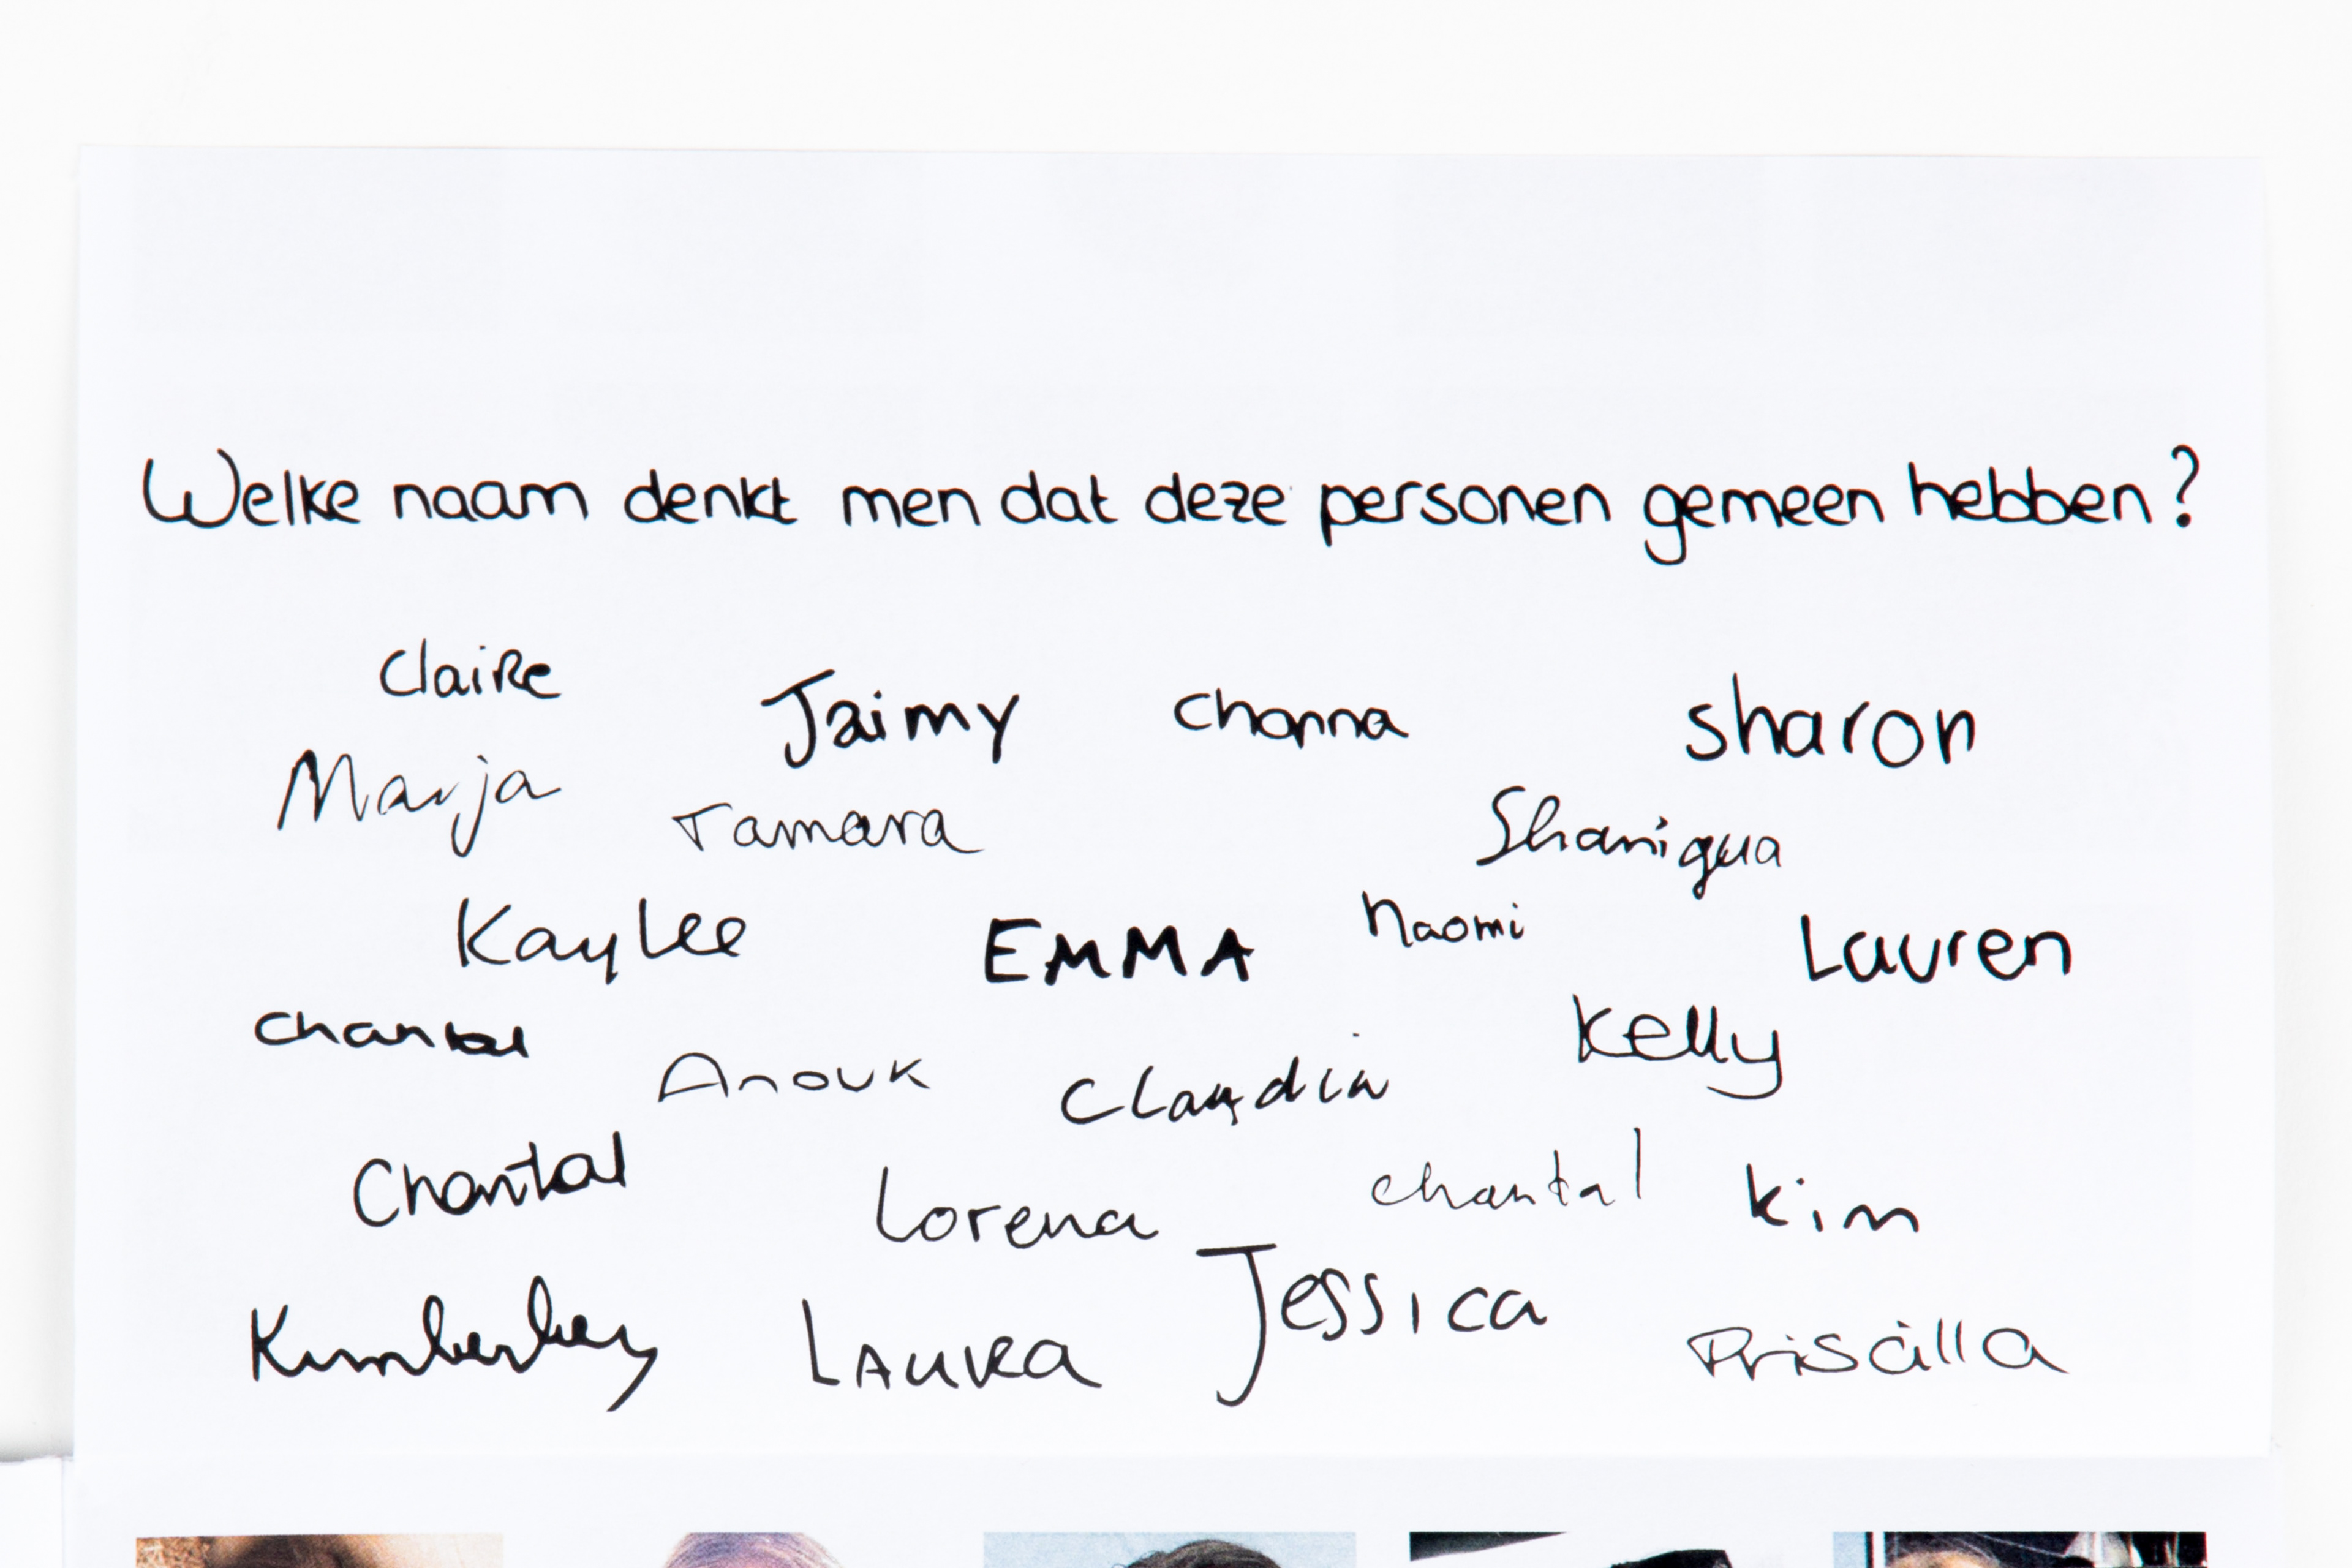 Welke naam denkt men dat deze personen gemeen hebben?
Claire
Jaimy Chonna sharon
Marja Tamara Shaniqua
Kaylee EMMA Naomi Lauren
Chantal Anouk Claudia Kelly
Chantal Lorena chantal Kim
Kimberley LAURa Jessica Priscilla